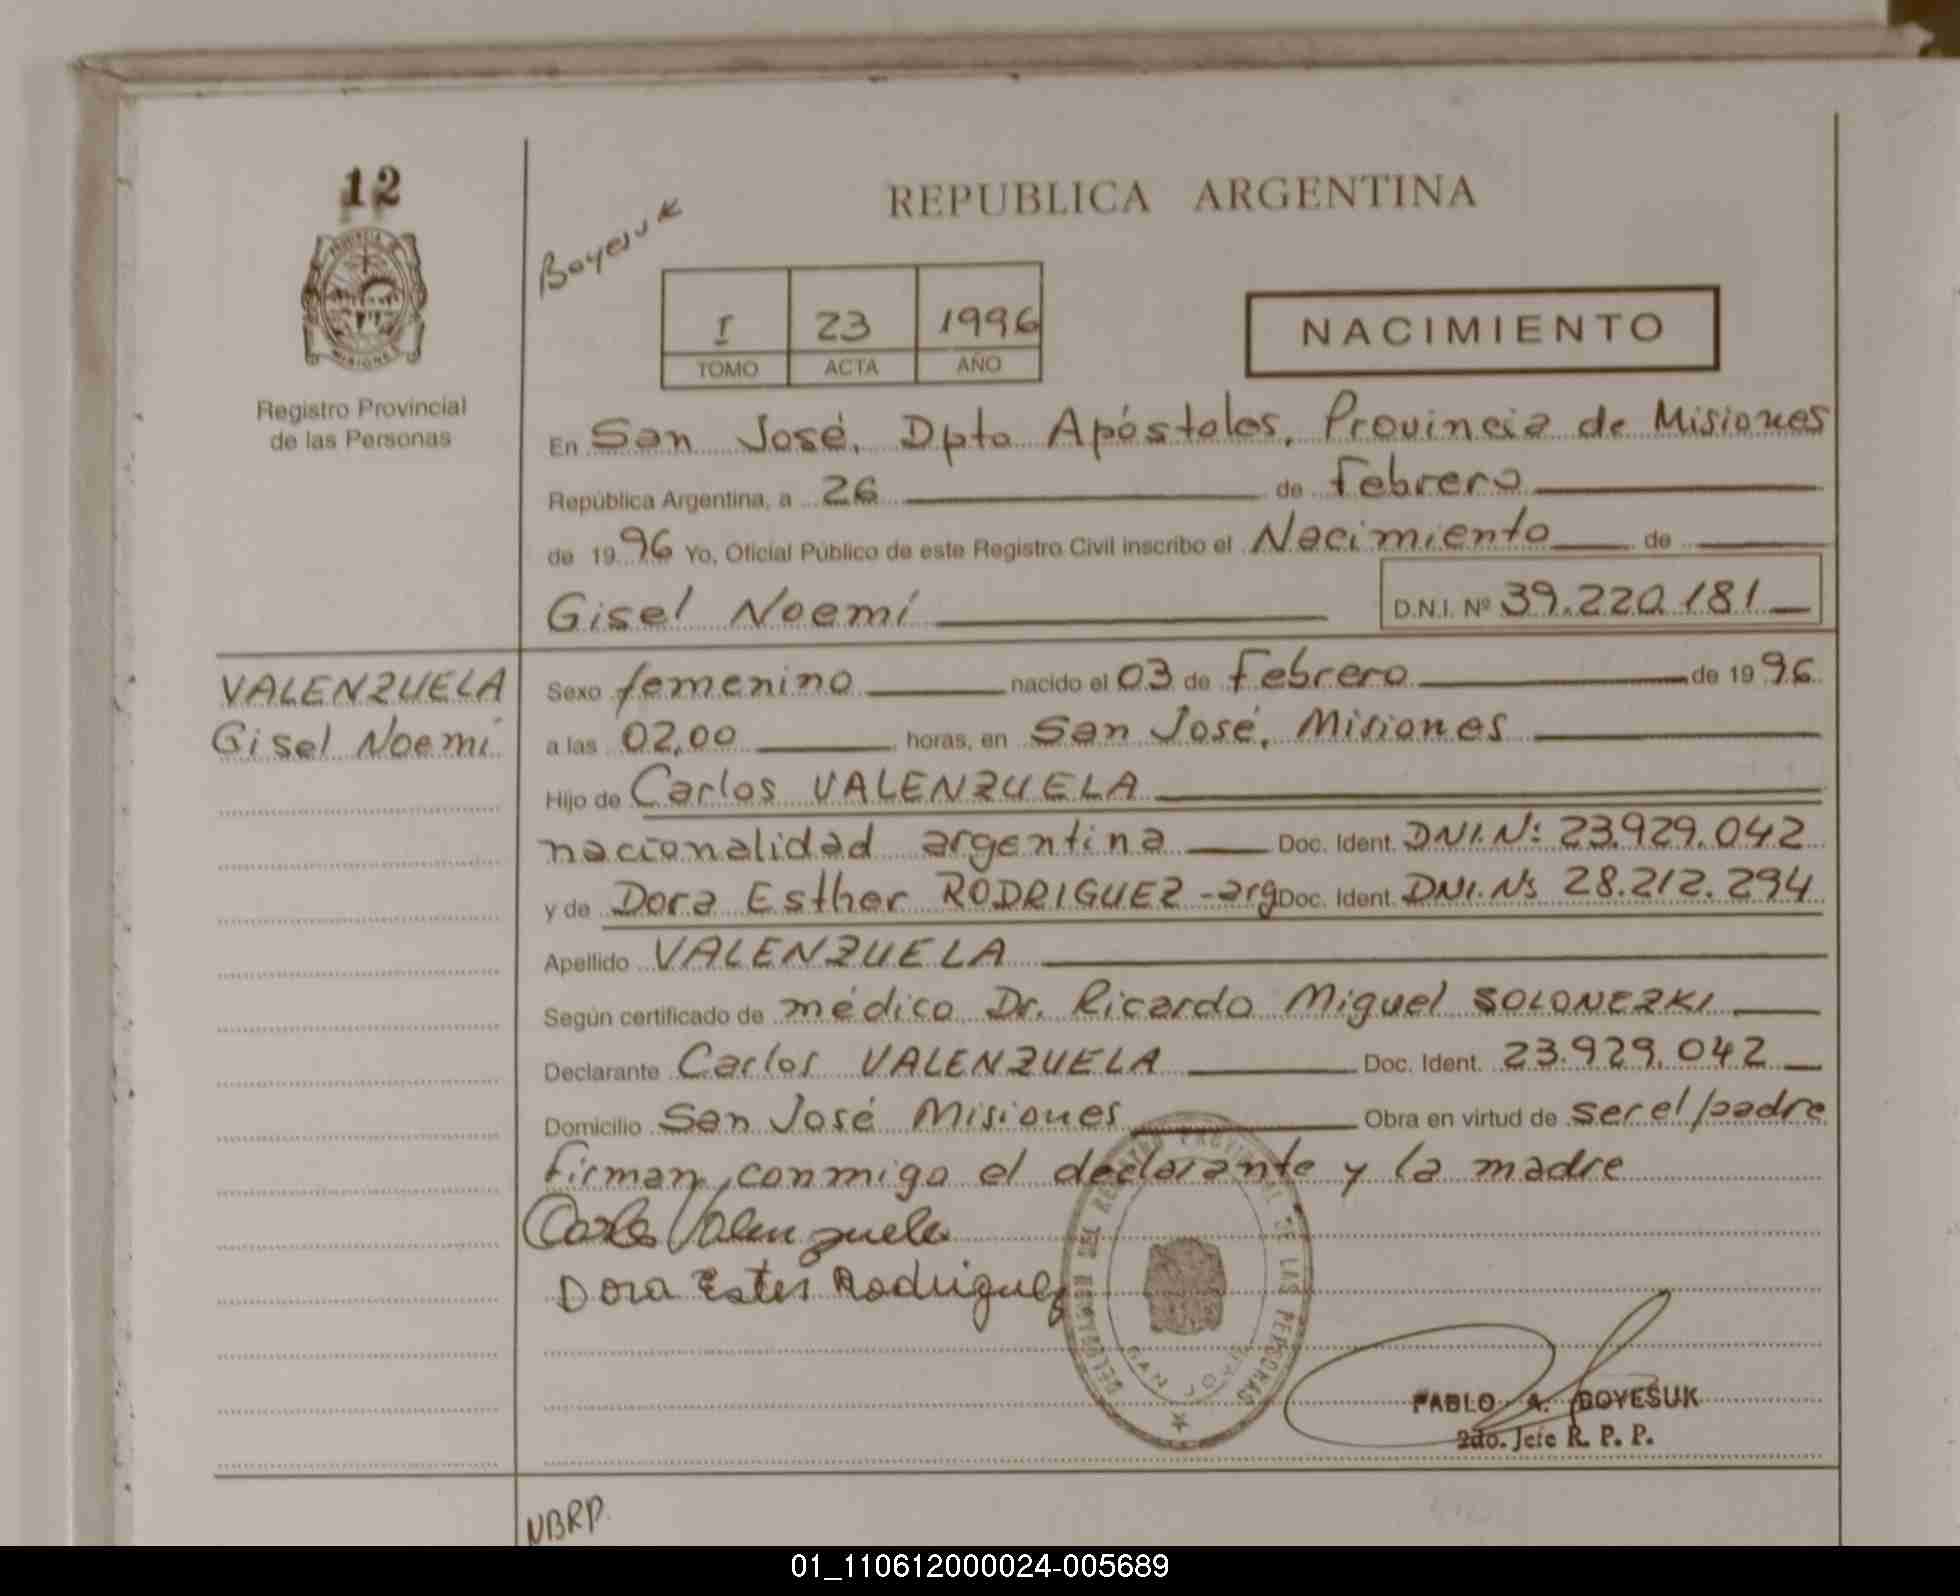 12
PROVINCIA DE
MISIONES
Registro Provincial
de las Personas
Boyesuk
REPUBLICA ARGENTINA
I 23 1996
TOMO ACTA AÑO
NACIMIENTO
En San José, Dpto Apóstoles, Provincia de Misiones
República Argentina, a 26 de Febrero
de 19 96 Yo, Oficial Público de este Registro Civil inscribo el Nacimiento de
Gisel Noemí D.N.I. Nº 39.220.181
VALENZUELA
Gisel Noemí
Sexo femenino nacido el 03 de Febrero de 19 96
a las 02,00 horas, en San José, Misiones
Hijo de Carlos VALENZUELA
nacionalidad argentina Doc. Ident. DNI.Nº 23.929.042
y de Dora Esther RODRIGUEZ -arg Doc. Ident. DNI.Nº 28.212.294
Apellido VALENZUELA
Según certificado de médico Dr. Ricardo Miguel SOLONEZKI
Declarante Carlos VALENZUELA Doc. Ident. 23.929.042
Domicilio San José Misiones Obra en virtud de ser el padre
Firman conmigo el declarante y la madre
Carlos Valenzuela
Dora Ester Rodriguez
DELEGACION DEL REGISTRO PROVINCIAL DE LAS PERSONAS
SAN JOSE
PABLO A. BOYESUK
2do. Jefe R. P. P.
NBRP.
01_110612000024-005689